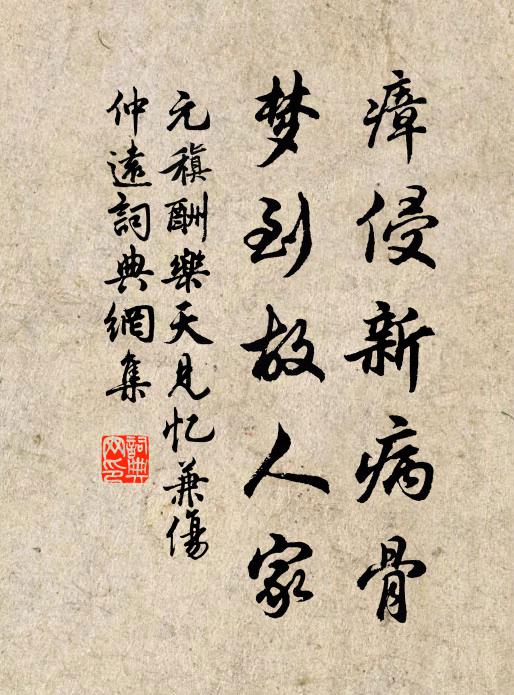 瘴侵新病骨
梦到故人家
元稹酬樂天見忆兼傷
仲遠詞典網集
詞典网印